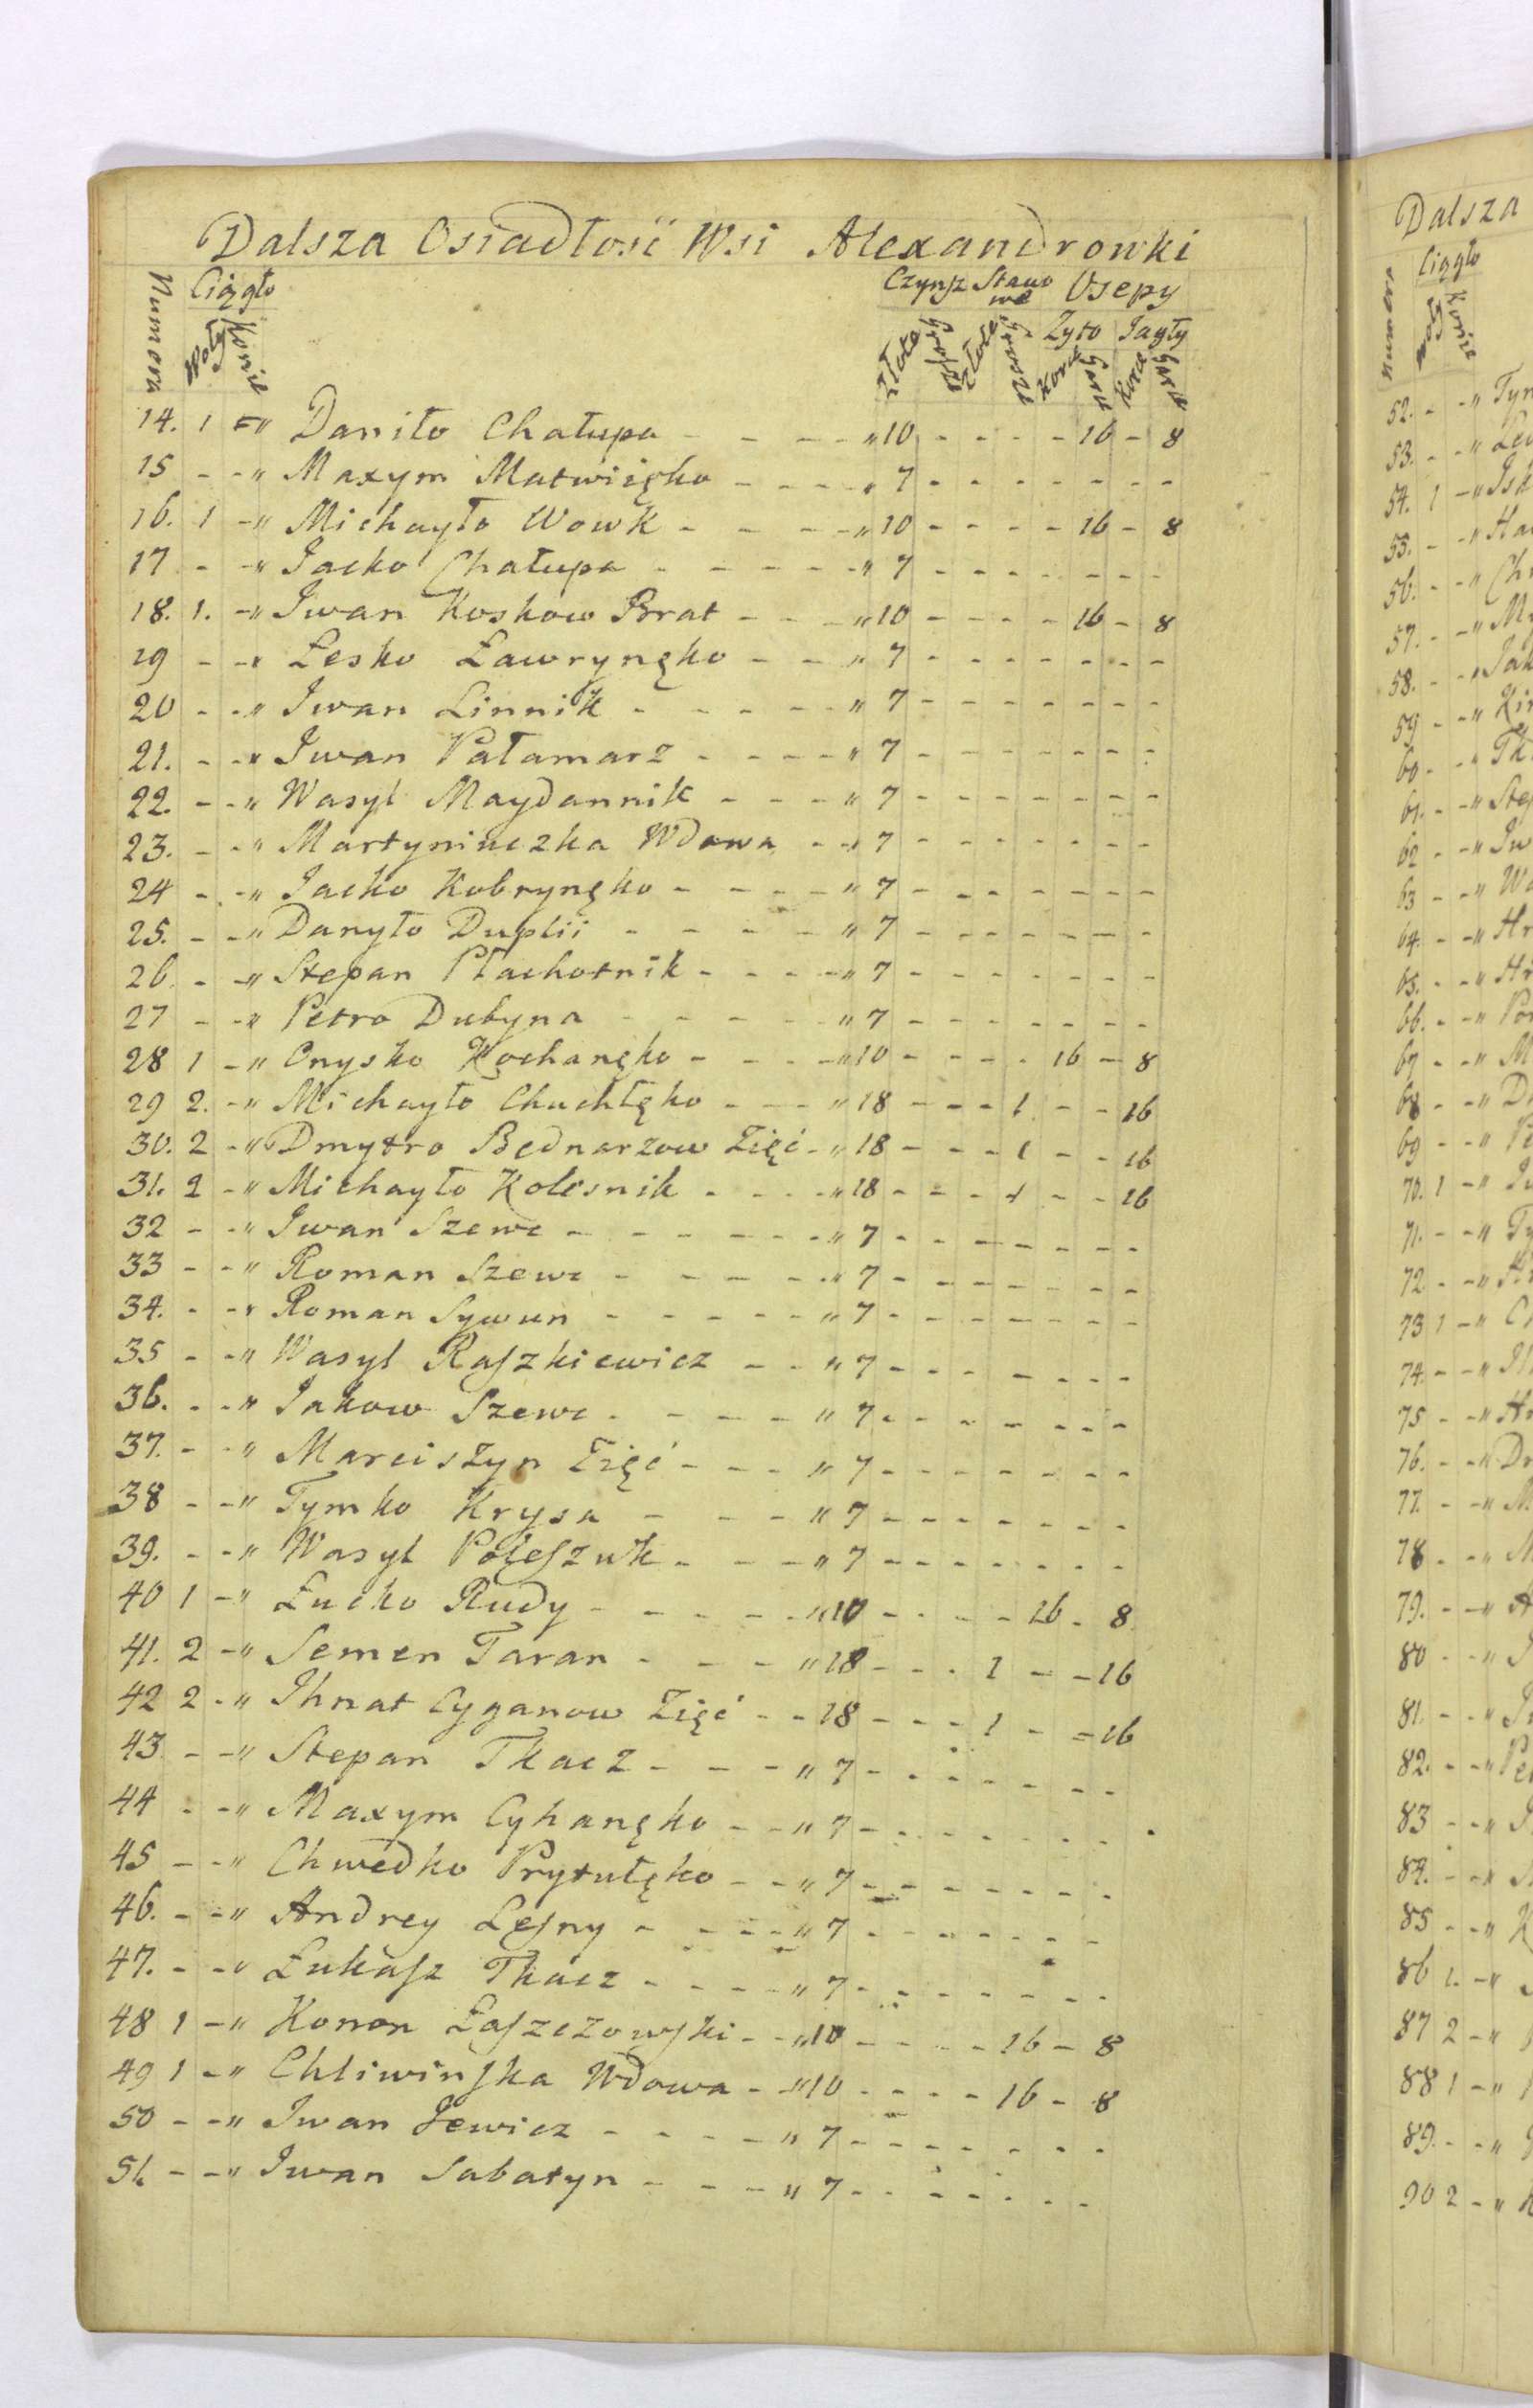 Dalsza Osiadłość Wsi Alexandrowki
Numera Ciągło Woły Konie Czynsz Stawowe Osepy
Żyto Jagły
Złote Grosze Złote Grosze Korce Garce Korce Garce
14. 1 - " Daniło Chałupa - - - - " 10 - - - - 16 - 8
15 - - " Maxym Matwięko - - - - " 7 - - - - - - -
16. 1 - " Michayło Wowk - - - - " 10 - - - - 16 - 8
17 - - " Jacko Chałupa - - - - - " 7 - - - - - - -
18. 1. - " Iwan Koskow Brat - - - " 10 - - - - 16 - 8
19 - - " Łesko Ławrynęko - - " 7 - - - - - - -
20 - - " Iwan Linnik - - - - - " 7 - - - - - - -
21. - - " Iwan Pałamarz - - - - " 7 - - - - - - -
22. - - " Wasyl Maydannik - - - " 7 - - - - - - -
23. - - " Martyniuczka Wdowa - - " 7 - - - - - - -
24 - - " Jacko Kobrynęko - - - - " 7 - - - - - - -
25. - - " Danyło Duplii - - - - " 7 - - - - - - -
26. - - " Stepan Płachotnik - - - - " 7 - - - - - - -
27 - - " Petro Dubyna - - - - - " 7 - - - - - - -
28 1 - " Onysko Kochanęko - - - - " 10 - - - - 16 - 8
29 2. - " Michayło Chuchłęko - - - " 18 - - - 1 - - 16
30. 2 - " Dmytro Bednarzow Zięć - " 18 - - - 1 - - 16
31. 2 - " Michayło Kolesnik - - - - " 18 - - - 1 - - 16
32 - - " Iwan Szewc - - - - - - " 7 - - - - - - -
33 - - " Roman Szewc - - - - - " 7 - - - - - - -
34. - - " Roman Sywun - - - - - " 7 - - - - - - -
35 - - " Wasyl Raszkiewicz - - " 7 - - - - - - -
36. - - " Jakow Szewc - - - - " 7 - - - - - - -
37. - - " Marciszyn Zięć - - - " 7 - - - - - - -
38 - - " Tymko Krysa - - - " 7 - - - - - - -
39. - - " Wasyl Poleszuk - - - " 7 - - - - - - -
40 1 - " Łucko Rudy - - - - - " 10 - - - - 16 - 8
41. 2 - " Semen Taran - - - - " 18 - - - 1 - - 16
42 2 - " Ihnat Cyganow Zięć - - 18 - - - 1 - - 16
43 - - " Stepan Tkacz - - - " 7 - - - - - - -
44 - - " Maxym Cyhanęko - - " 7 - - - - - - -
45 - - " Chwedko Prytulęko - - " 7 - - - - - - -
46. - - " Andrey Leśny - - - - " 7 - - - - - - -
47. - - " Łukasz Tkacz - - - - " 7 - - - - - - -
48 1 - " Konon Łaszczowski - - " 10 - - - - 16 - 8
49 1 - " Chliwinska Wdowa - " 10 - - - - 16 - 8
50 - - " Iwan Jewicz - - - - " 7 - - - - - - -
51 - - " Iwan Sabatyn - - - - " 7 - - - - - - -
Dalsza
Ciągło
Numera Woły Konie
52. - - "
53. - - "
54. 1 - "
55. - - "
56. - - "
57. - - "
58. - - "
59 - - "
60 - - "
61. - - "
62 - - "
63 - - "
64. - - "
65. - - "
66. - - "
67 - - "
68 - - "
69 - - "
70. 1 - "
71. - - "
72. - - "
73 1 - "
74. - - "
75 - - "
76. - - "
77. - - "
78 - - "
79. - - "
80 - - "
81. - - "
82. - - "
83 - - "
84. - - "
85 - - "
86 1. - "
87 2 - "
88 1 - "
89. - - "
90 2 - "